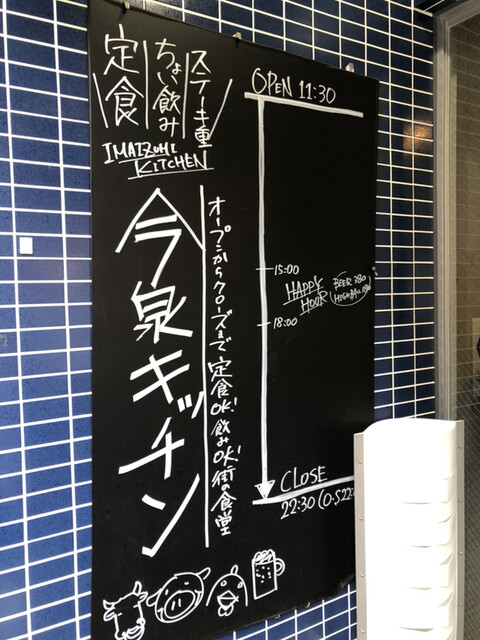 ステーキ重
ちょい飲み
定食
IMAIZUMI
KITCHEN
今泉キッチン
オープンからクローズまで定食OK!飲みOK!街の食堂
OPEN 11:30
15:00
HAPPY
HOUR
BEER 380
HIGHBALL
18:00
CLOSE
22:30 (O.S 22: